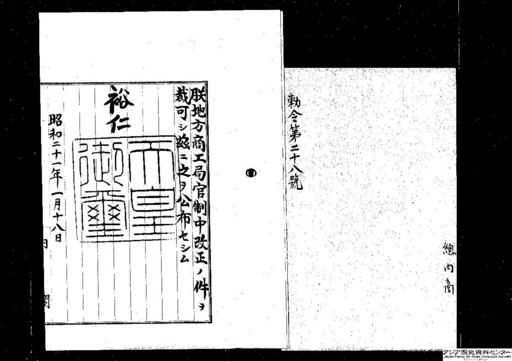 勅令第二十八號
總內商
朕地方商工局官制中改正ノ件ヲ
裁可シ茲ニ之ヲ公布セシム
裕仁
天皇御璽
昭和二十一年一月十八日
アジア歴史資料センター